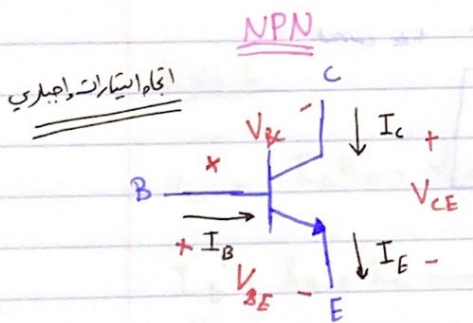 NPN
C
اتجاه التيارات إجباري
V_BC -
I_C +
+
B
V_CE
+ I_B
I_E -
V_BE -
E